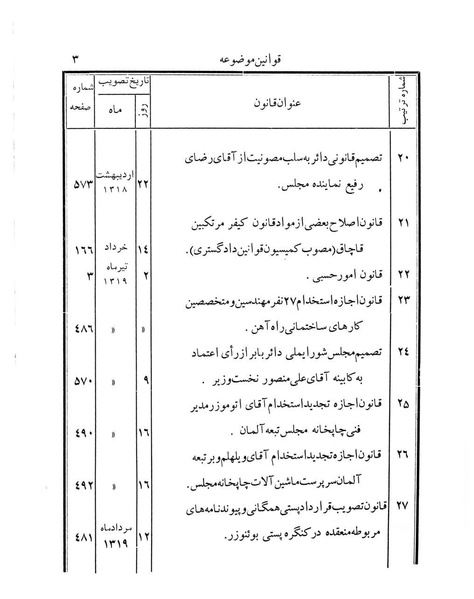 قوانین موضوعه ۳
شماره ترتیب عنوان قانون تاریخ تصویب شماره صفحه
روز ماه
۲۰ تصمیم قانونی دائر به سلب مصونیت از آقای رضای اردیبهشت
رفیع نماینده مجلس. ۲۲ ۱۳۱۸ ۵۷۳
۲۱ قانون اصلاح بعضی از مواد قانون کیفر مرتکبین
قاچاق (مصوب کمیسیون قوانین دادگستری). ۱۴ خرداد ۱۶۶
۲۲ قانون امور حسبی. ۲ تیرماه ۱۳۱۹ ۳
۲۳ قانون اجازه استخدام ۲۷ نفر مهندسین و متخصصین
کارهای ساختمانی راه آهن. » » ۴۸۶
۲۴ تصمیم مجلس شورایملی دائر بابراز رأی اعتماد
به کابینه آقای علی منصور نخست وزیر. ۹ » ۵۷۰
۲۵ قانون اجازه تجدید استخدام آقای اتوموزر مدیر
فنی چاپخانه مجلس تبعه آلمان. ۱۶ » ۴۹۰
۲۶ قانون اجازه تجدید استخدام آقای ویلهلم وبر تبعه
آلمان سرپرست ماشین آلات چاپخانه مجلس. ۱۶ » ۴۹۲
۲۷ قانون تصویب قرارداد پستی همگانی و پیوندنامه های
مربوطه منعقده در کنگره پستی بوئنوزر. ۱۲ مردادماه ۱۳۱۹ ۴۸۱